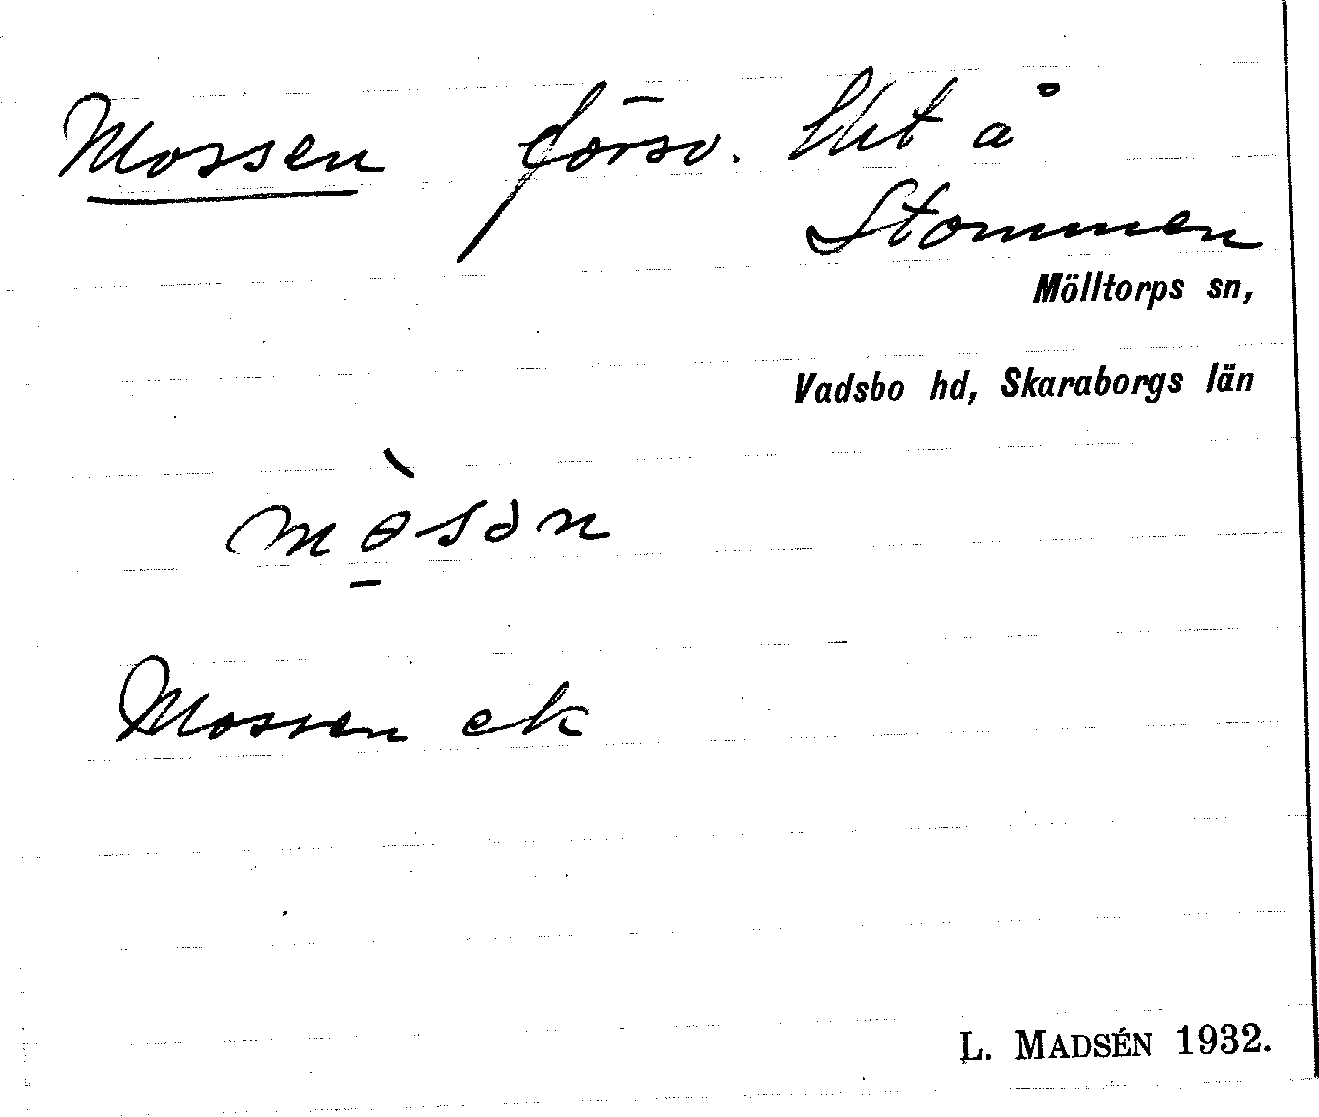 Mossen försv. lht å
Stommen
Mölltorps sn,
Vadsbo hd, Skaraborgs län
Mossen ek
L. MADSÉN 1932.